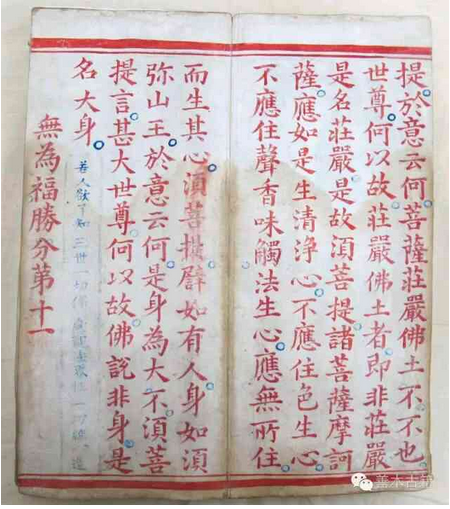 提於意云何菩薩莊嚴佛土不不也
世尊何以故莊嚴佛土者即非莊嚴
是名莊嚴是故湏菩提諸菩薩摩訶
薩應如是生清淨心不應住色生心
不應住聲香味觸法生心應無所住
而生其心湏菩提譬如有人身如湏
弥山王於意云何是身為大不湏菩
提言甚大世尊何以故佛說非身是
名大身
若人欲了知三世一切佛
無為福勝分第十一
善本古籍